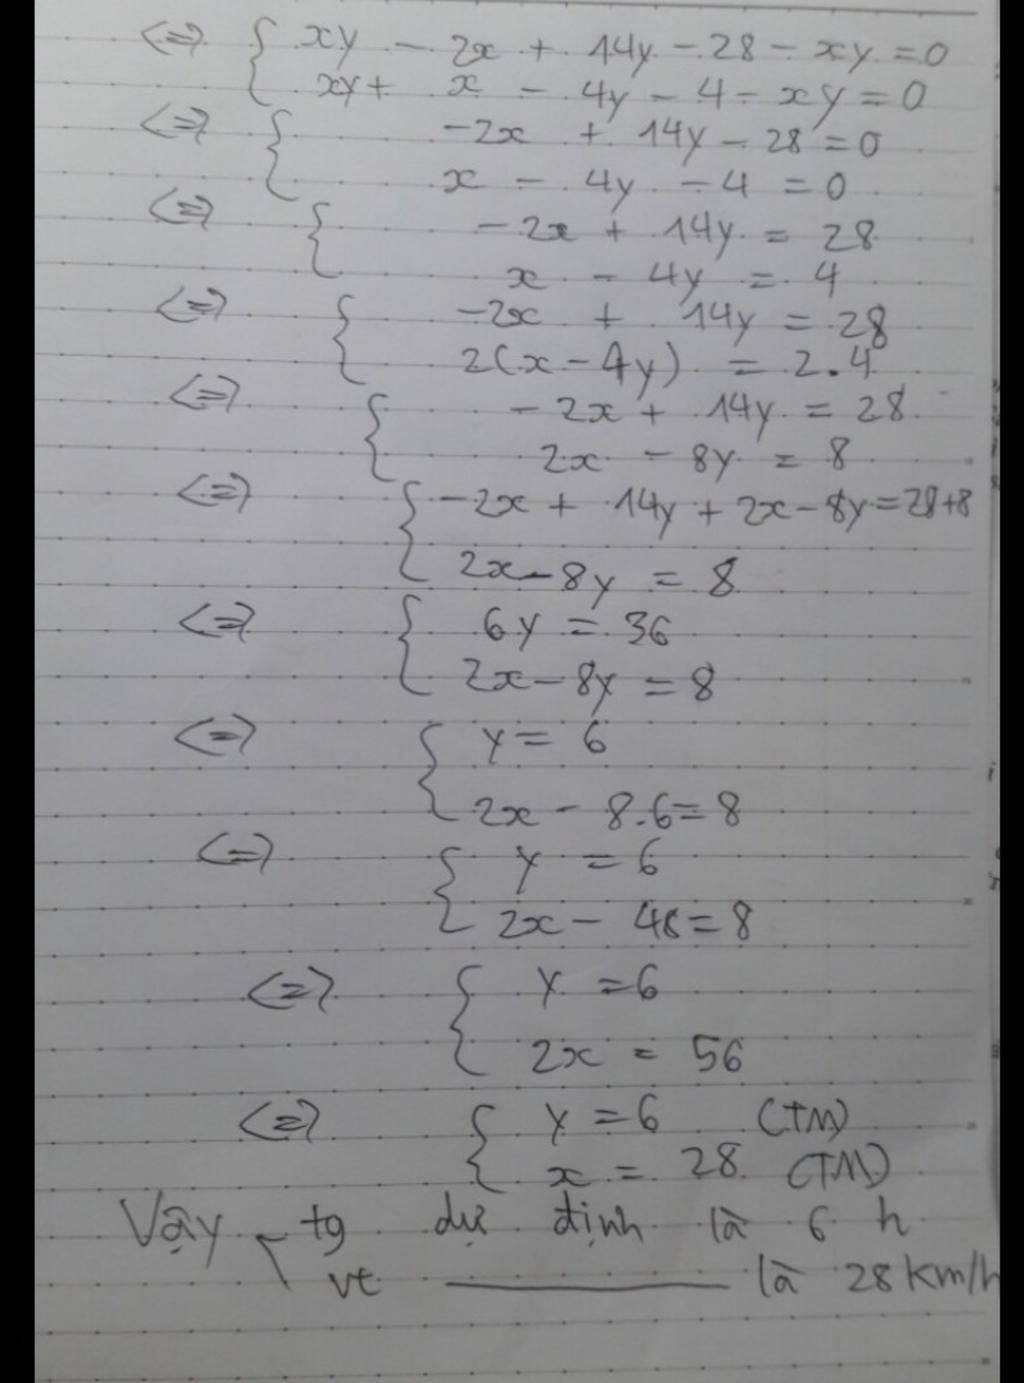 <=> { xy - 2x + 14y - 28 - xy = 0
xy + x - 4y - 4 - xy = 0
<=> { -2x + 14y - 28 = 0
x - 4y - 4 = 0
<=> { -2x + 14y = 28
x - 4y = 4
<=> { -2x + 14y = 28
2(x - 4y) = 2.4
<=> { -2x + 14y = 28
2x - 8y = 8
<=> { -2x + 14y + 2x - 8y = 28+8
2x - 8y = 8
<=> { 6y = 36
2x - 8y = 8
<=> { y = 6
2x - 8.6 = 8
<=> { y = 6
2x - 48 = 8
<=> { y = 6
2x = 56
<=> { y = 6 (TM)
x = 28 (TM)
Vậy tg dự định là 6 h
vt ——— là 28 km/h